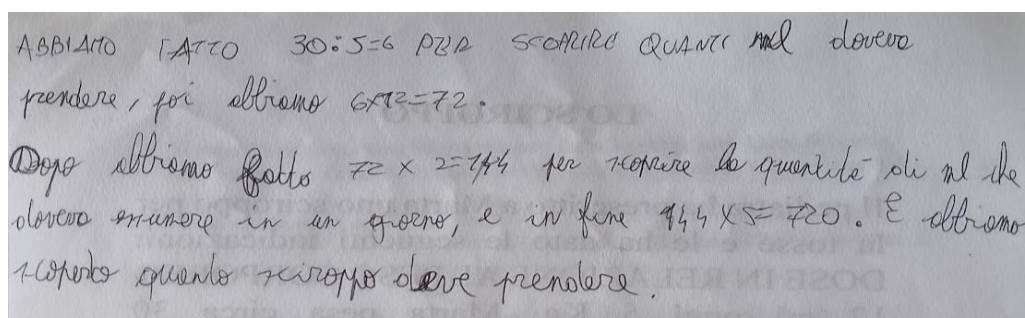 ABBIAMO FATTO 30:5=6 PER SCOPRIRE QUANTI ml doveva
prendere, poi abbiamo 6x12=72.
Dopo abbiamo fatto 72 x 2=144 per scoprire la quantità di ml che
doveva assumere in un giorno, e in fine 144x5=720. E abbiamo
scoperto quanto sciroppo deve prendere.
LO SCIROPPO
DOSE IN REL